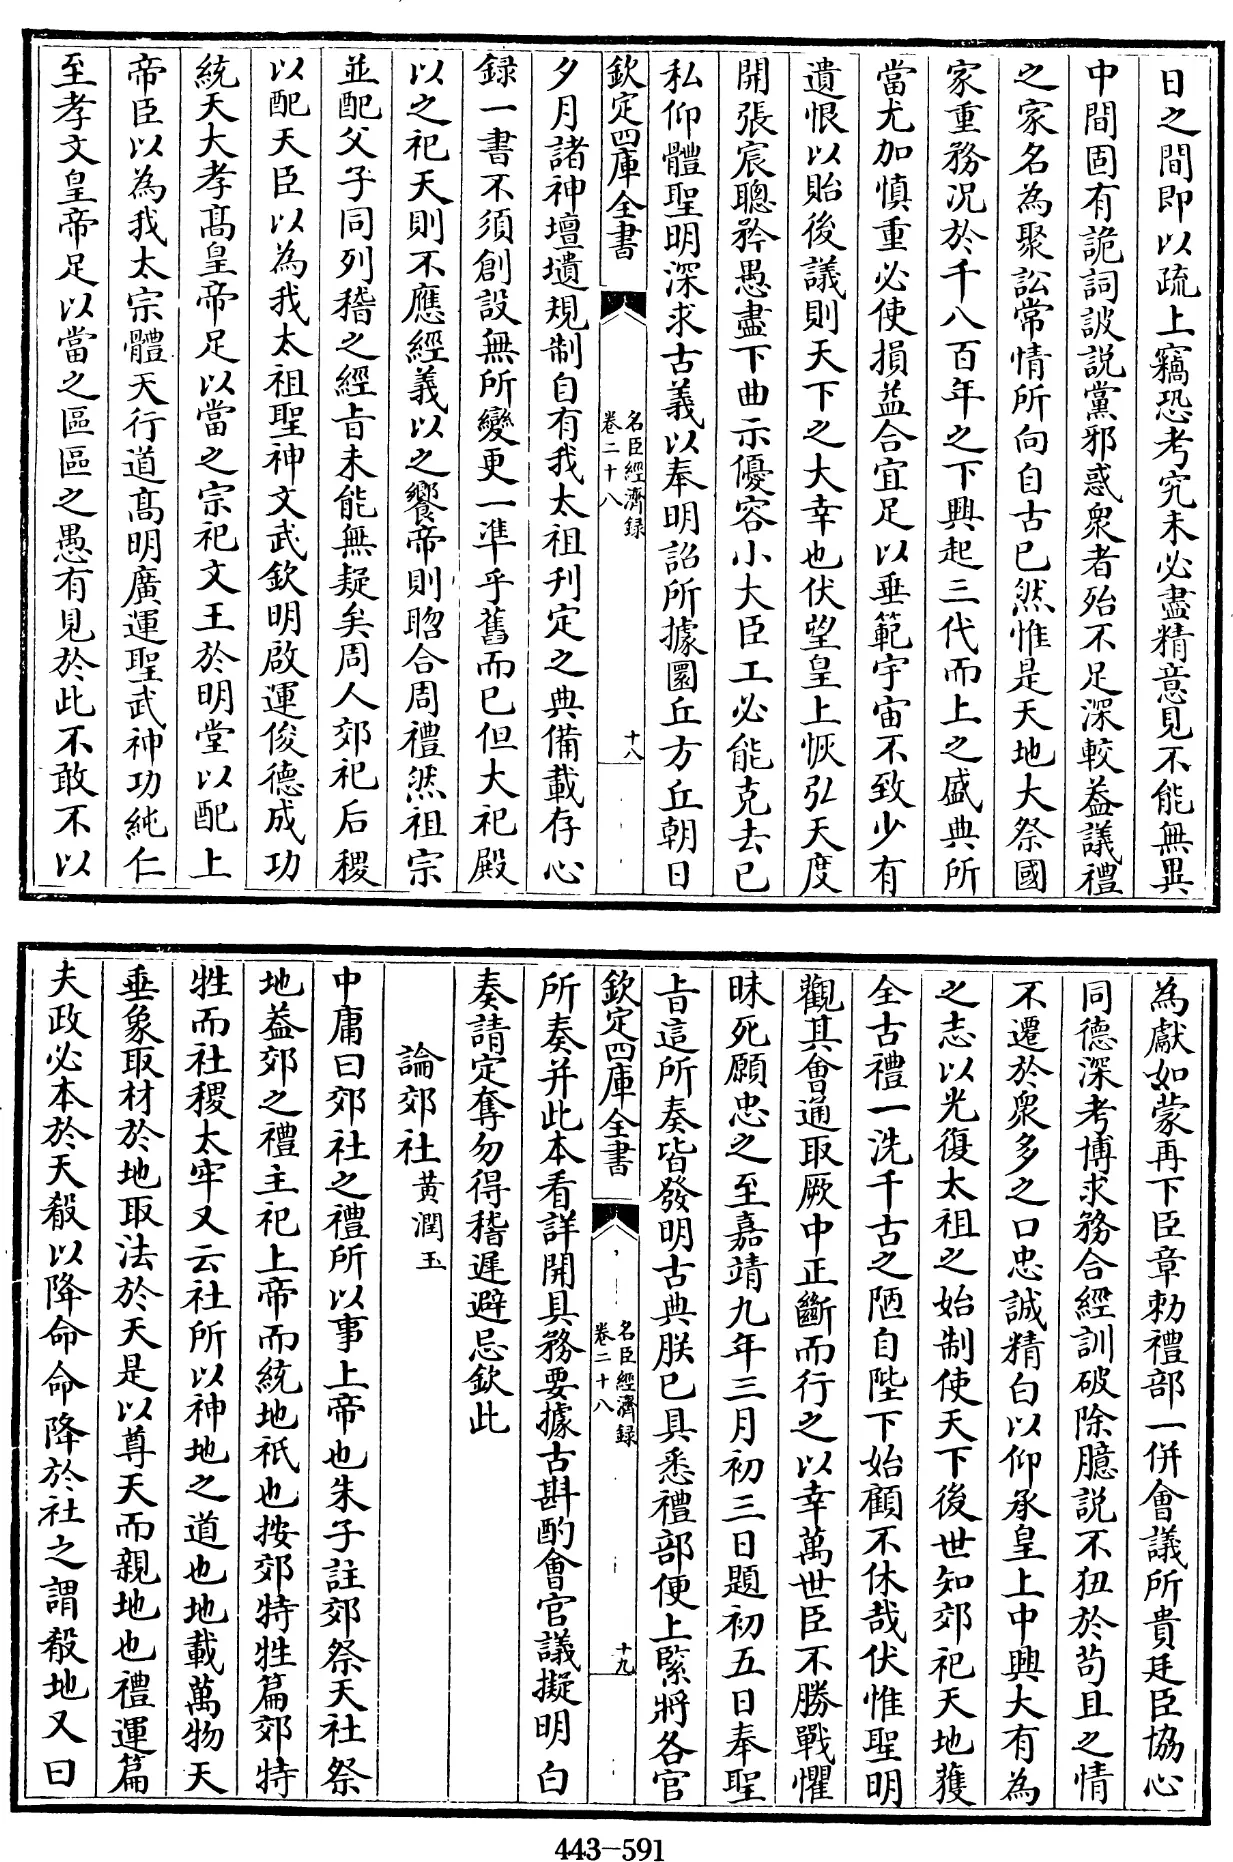 日之間即以疏上竊恐考究未必盡精意見不能無異
中間固有詭詞詖説黨邪惑衆者殆不足深較葢議禮
之家名為聚訟常情所向自古已然惟是天地大祭國
家重務況於千八百年之下興起三代而上之盛典所
當尤加慎重必使損益合宜足以垂範宇宙不致少有
遺恨以貽後議則天下之大幸也伏望皇上恢弘天度
開張宸聰矜愚盡下曲示優容小大臣工必能克去已
私仰體聖明深求古義以奉明詔所據圜丘方丘朝日
欽定四庫全書
名臣經濟録
卷二十八
十八
夕月諸神壇壝規制自有我太祖刋定之典備載存心
録一書不須創設無所變更一準乎舊而已但大祀殿
以之祀天則不應經義以之饗帝則昭合周禮然祖宗
並配父子同列稽之經㫖未能無疑矣周人郊祀后稷
以配天臣以為我太祖聖神文武欽明啟運俊德成功
統天大孝髙皇帝足以當之宗祀文王於明堂以配上
帝臣以為我太宗體天行道髙明廣運聖武神功純仁
至孝文皇帝足以當之區區之愚有見於此不敢不以
為獻如蒙再下臣章勅禮部一併會議所貴廷臣協心
同德深考博求務合經訓破除臆説不狃於苟且之情
不遷於衆多之口忠誠精白以仰承皇上中興大有為
之志以光復太祖之始制使天下後世知郊祀天地蒦
全古禮一洗千古之陋自陛下始顧不休哉伏惟聖明
觀其會通取厥中正斷而行之以幸萬世臣不勝戰懼
昧死願忠之至嘉靖九年三月初三日題初五日奉聖
㫖這所奏皆發明古典朕已具悉禮部便上緊將各官
欽定四庫全書
名臣經濟録
卷二十八
十九
所奏并此本看詳開具務要據古斟酌會官議擬明白
奏請定奪勿得稽遲避忌欽此
論郊社 黄潤玉
中庸曰郊社之禮所以事上帝也朱子註郊祭天社祭
地葢郊之禮主祀上帝而統地祇也按郊特牲篇郊特
牲而社稷太牢又云社所以神地之道也地載萬物天
垂象取材於地取法於天是以尊天而親地也禮運篇
夫政必本於天殽以降命命降於社之謂殽地又曰
443-591